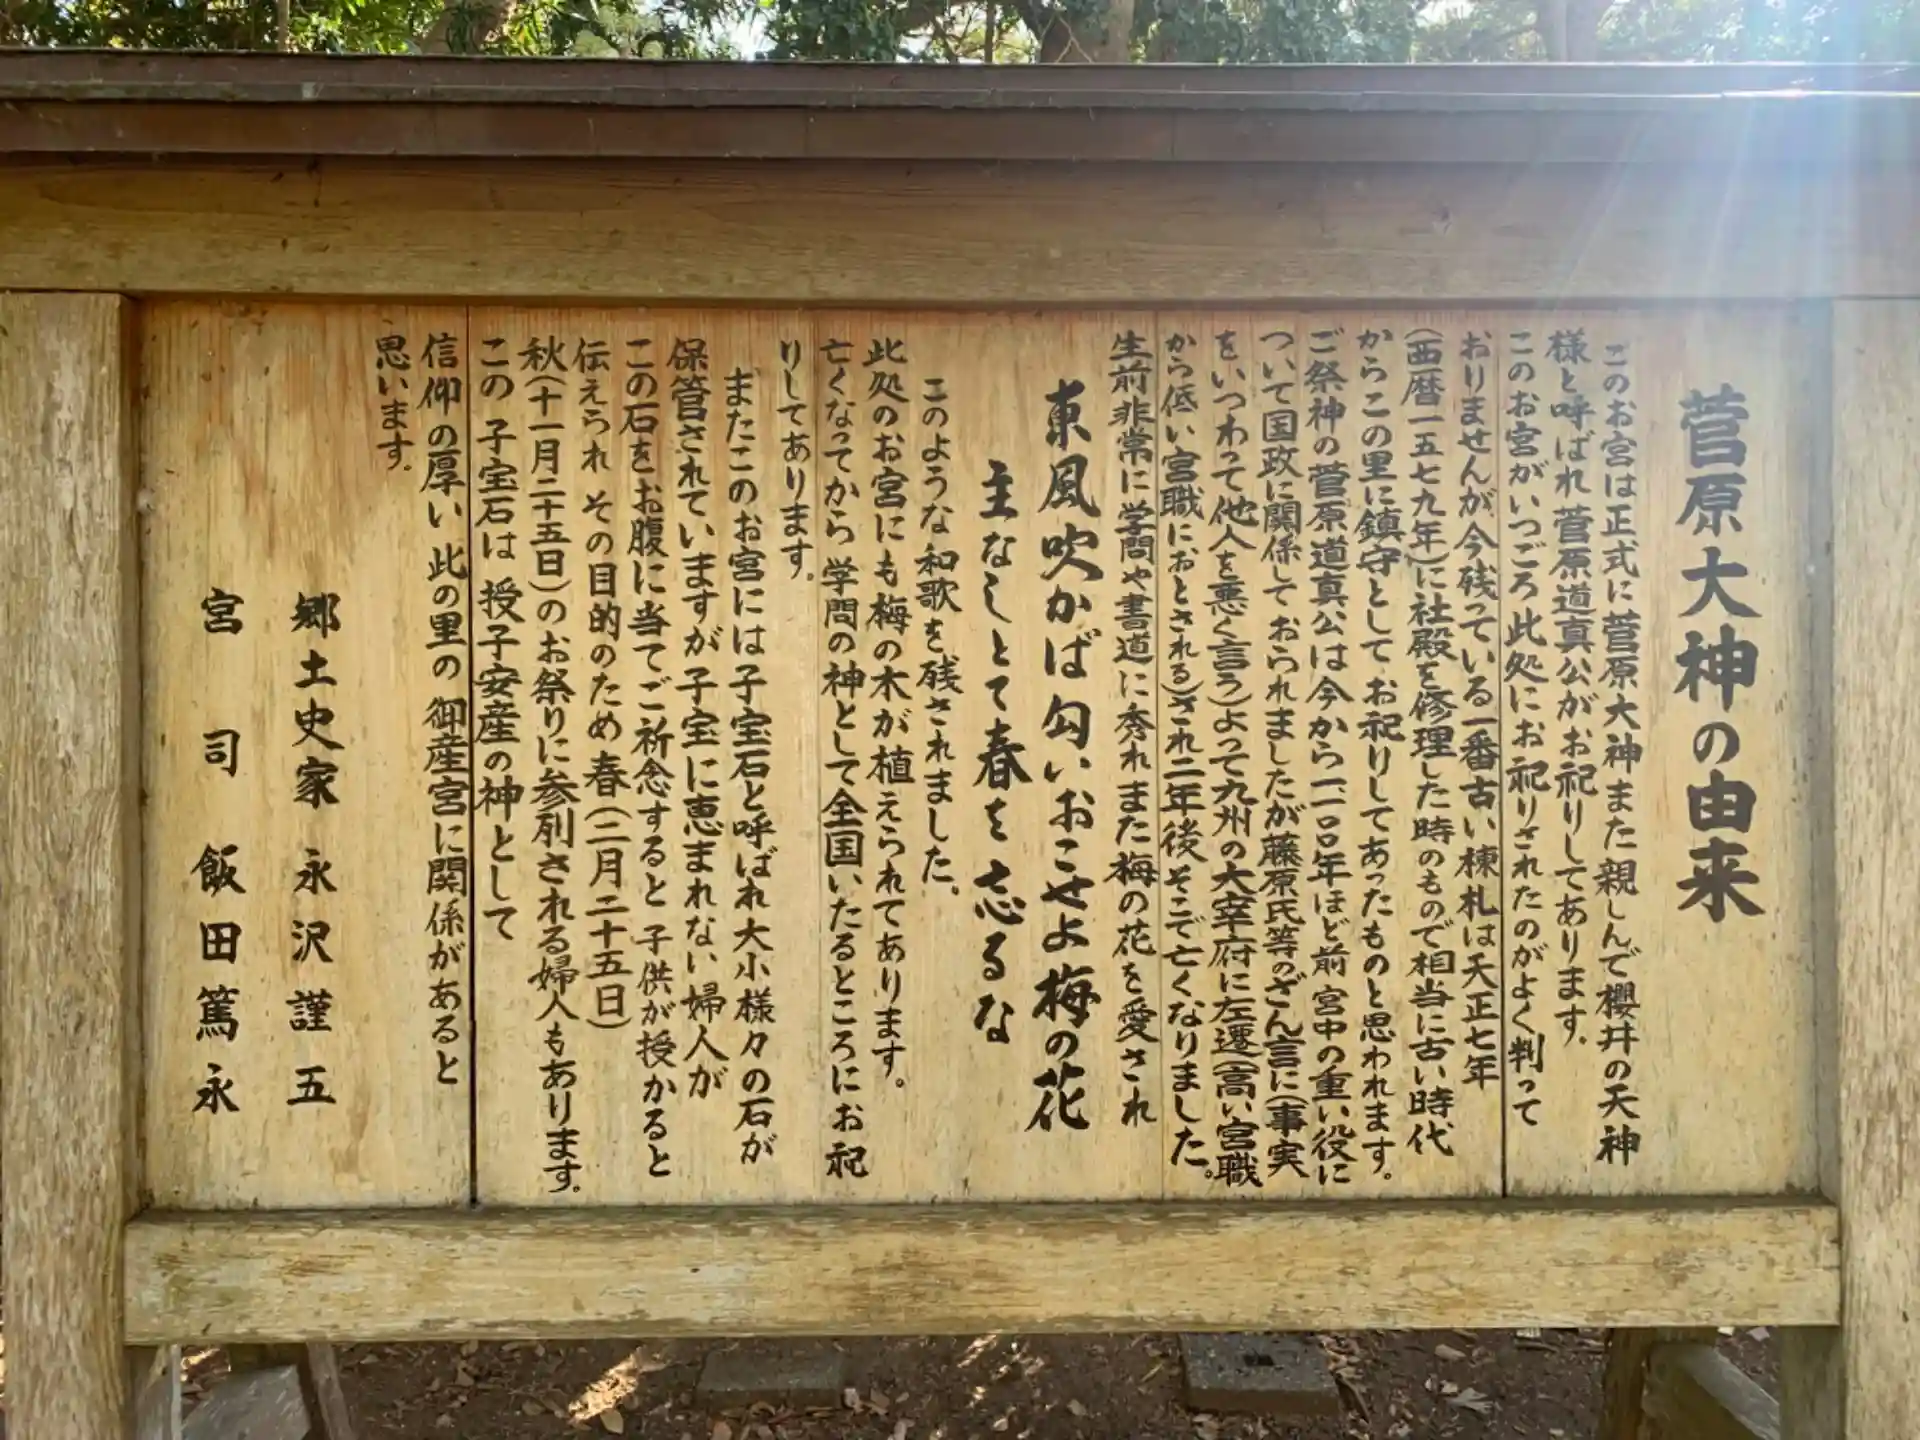 菅原大神の由来
このお宮は正式に菅原大神また親しんで櫻井の天神
様と呼ばれ菅原道真公がお祀りしてあります。
このお宮がいつごろ此処にお祀りされたのがよく判って
おりませんが今残っている一番古い棟札は天正七年
(西暦一五七九年)に社殿を修理した時のもので相当に古い時代
からこの里に鎮守としてお祀りしてあったものと思われます。
ご祭神の菅原道真公は今から一一〇〇年ほど前宮中の重い役に
ついて国政に関係しておられましたが藤原氏等のざん言に(事実
をいつわって他人を悪く言う)よって九州の大宰府に左遷(高い宮職
から低い宮職におとされる)され二年後そこで亡くなりました。
生前非常に学問や書道に秀れまた梅の花を愛され
東風吹かば匂いおこせよ梅の花
主なしとて春を忘るな
このような和歌を残されました。
此処のお宮にも梅の木が植えられてあります。
亡くなってから学問の神として全国いたるところにお祀
りしてあります。
またこのお宮には子宝石と呼ばれ大小様々の石が
保管されていますが子宝に恵まれない婦人が
この石をお腹に当てご祈念すると子供が授かると
伝えられその目的のため春(二月二十五日)
秋(十一月二十五日)のお祭りに参列される婦人もあります。
この子宝石は授子安産の神として
信仰の厚い此の里の御産宮に関係があると
思います。
郷土史家 永沢謹五
宮司 飯田篤永